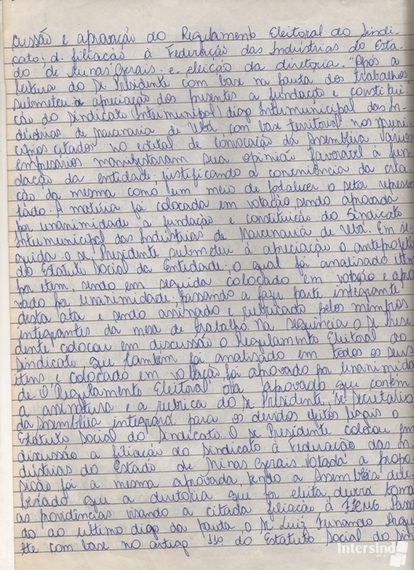 cussão e aprovação do Regulamento Eleitoral do Sindi-
cato, d. filiação à Federação das Indústrias do Esta-
do de Minas Gerais e eleição da diretoria. Após a
leitura do Sr. Presidente com base na pauta dos trabalhos
submeteu a apreciação dos presentes a fundação e constitui
ção do Sindicato (Intermunicipal) digo Intermunicipal das In-
dústrias de Marcenaria de Ubá, com base territorial nos muni-
cípios citados no edital de convocação da Assembléia. Vários
empresários manifestaram sua opinião favorável à fun-
dação da entidade, justificando a conveniência da cria-
ção da mesma como um meio de fortalecer o setor represen-
tado. A matéria foi colocada em votação sendo aprovada
por unanimidade a fundação e constituição do Sindicato
Intermunicipal das Indústrias de Marcenaria de Ubá. Em se-
guida o sr. Presidente submeteu à apreciação o anteprojeto
do Estatuto Social da Entidade, o qual foi analisado item
por item, sendo em seguida colocado em votação e apro-
vado por unanimidade, passando a fazer parte integrante
desta ata e sendo assinado e rubricado pelos membros
integrantes da mesa de trabalho. Na sequência o Sr. Presi-
dente colocou em discussão o Regulamento Eleitoral do
Sindicato que também foi analisado em todos os seus
itens e colocado em votação foi aprovado por unanimida-
de. O "Regulamento Eleitoral" ora aprovado que contém
a assinatura e a rubrica do Sr. Presidente e Secretário
da Assembléia integrará para os devidos efeitos legais o
Estatuto Social do Sindicato. O Sr. Presidente colocou em
discussão a filiação do Sindicato à Federação das In-
dústrias do Estado de Minas Gerais. Votada a propo-
sição foi a mesma aprovada, tendo a Assembléia deli-
berado que a diretoria que for eleita deverá tomar
as providências visando a citada filiação à FIEMG. Passan
do ao último digo da pauta, o Sr. Luiz Fernando
te com base no artigo do Estatuto Social do Sind
Intersind